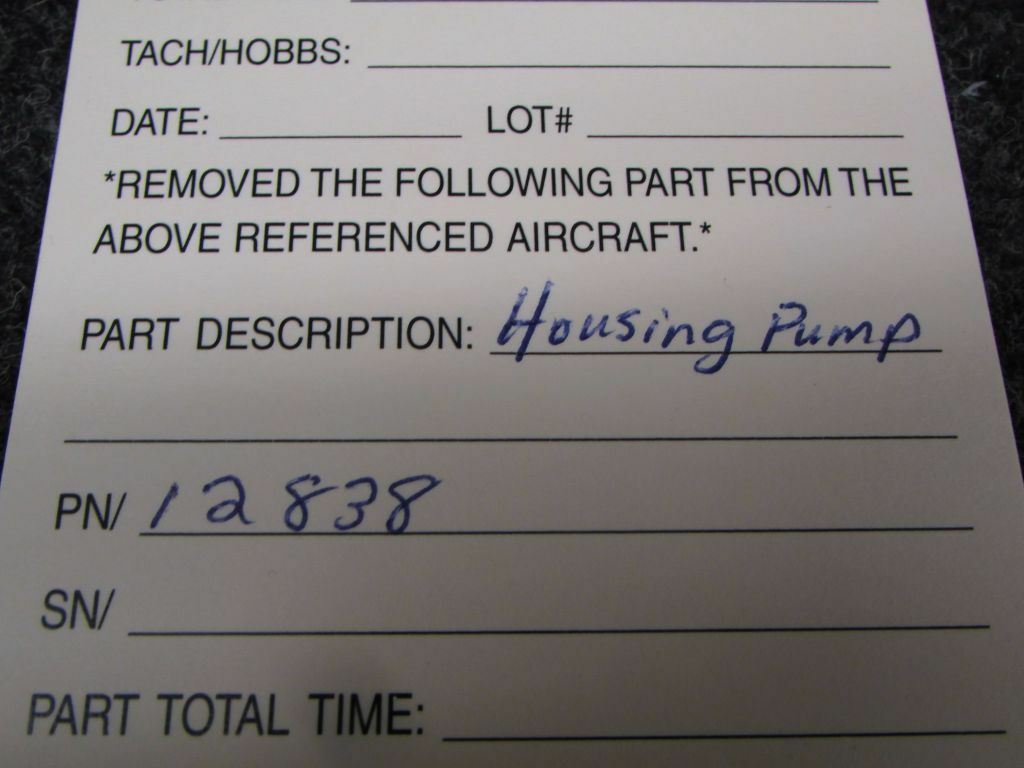 TACH/HOBBS:
DATE: LOT#
*REMOVED THE FOLLOWING PART FROM THE
ABOVE REFERENCED AIRCRAFT.*
PART DESCRIPTION: Housing Pump
PN/ 12838
SN/
PART TOTAL TIME: